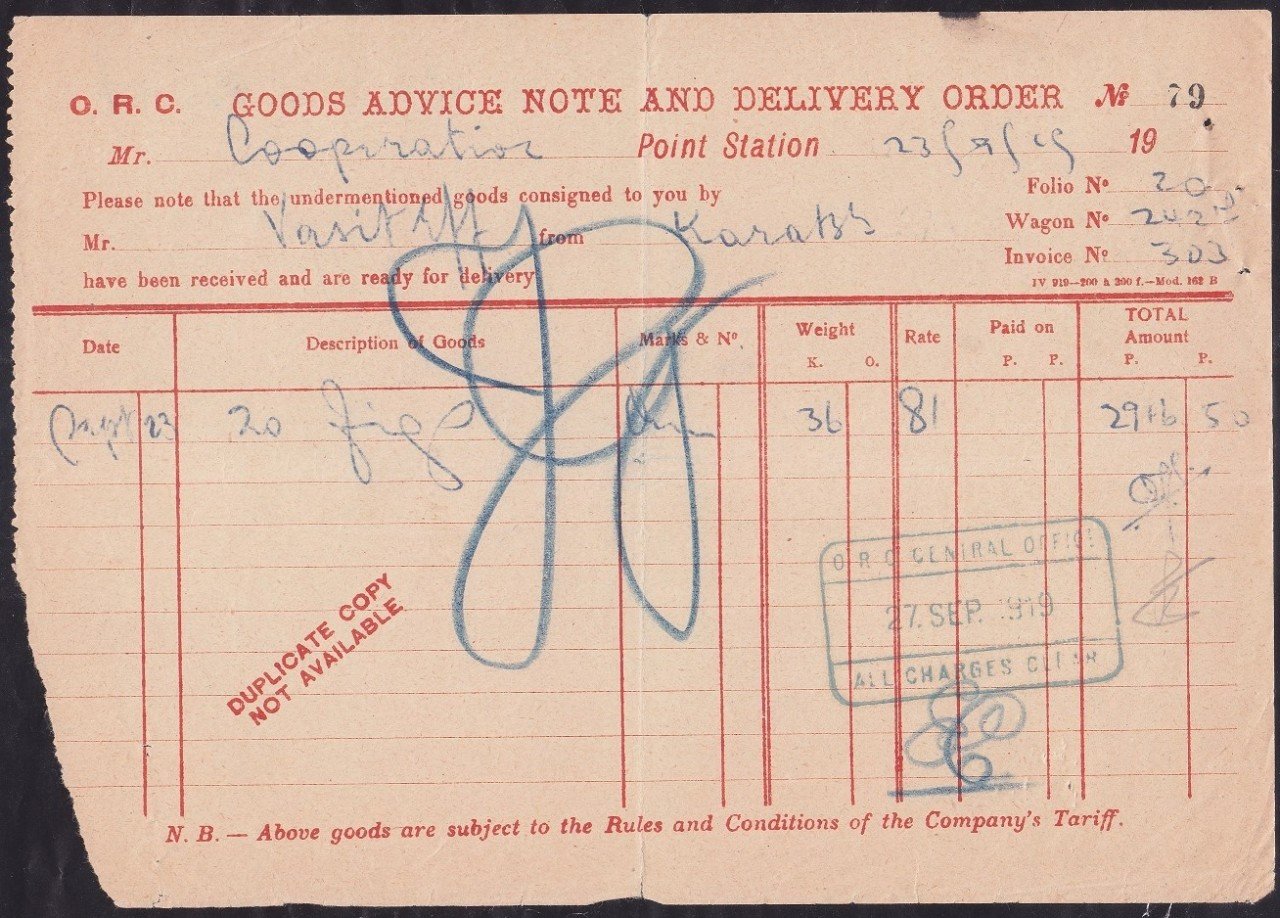 O. R. C. GOODS ADVICE NOTE AND DELIVERY ORDER № 79
Mr. Cooperative Point Station 23/9/19 19
Please note that the undermentioned goods consigned to you by
Folio Nº 20
Mr. from
Wagon Nº
Invoice Nº 303
have been received and are ready for delivery
IV 919—200 à 200 f.—Mod. 162 B
Date Description of Goods Marks & Nº. Weight Rate Paid on TOTAL Amount
K. O. P. P. P. P.
Sept 23 20 figs 36 81 2916 50
O R C CENTRAL OFFICE
27. SEP. 1919
ALL CHARGES CLEAR
DUPLICATE COPY
NOT AVAILABLE
N. B. — Above goods are subject to the Rules and Conditions of the Company's Tariff.